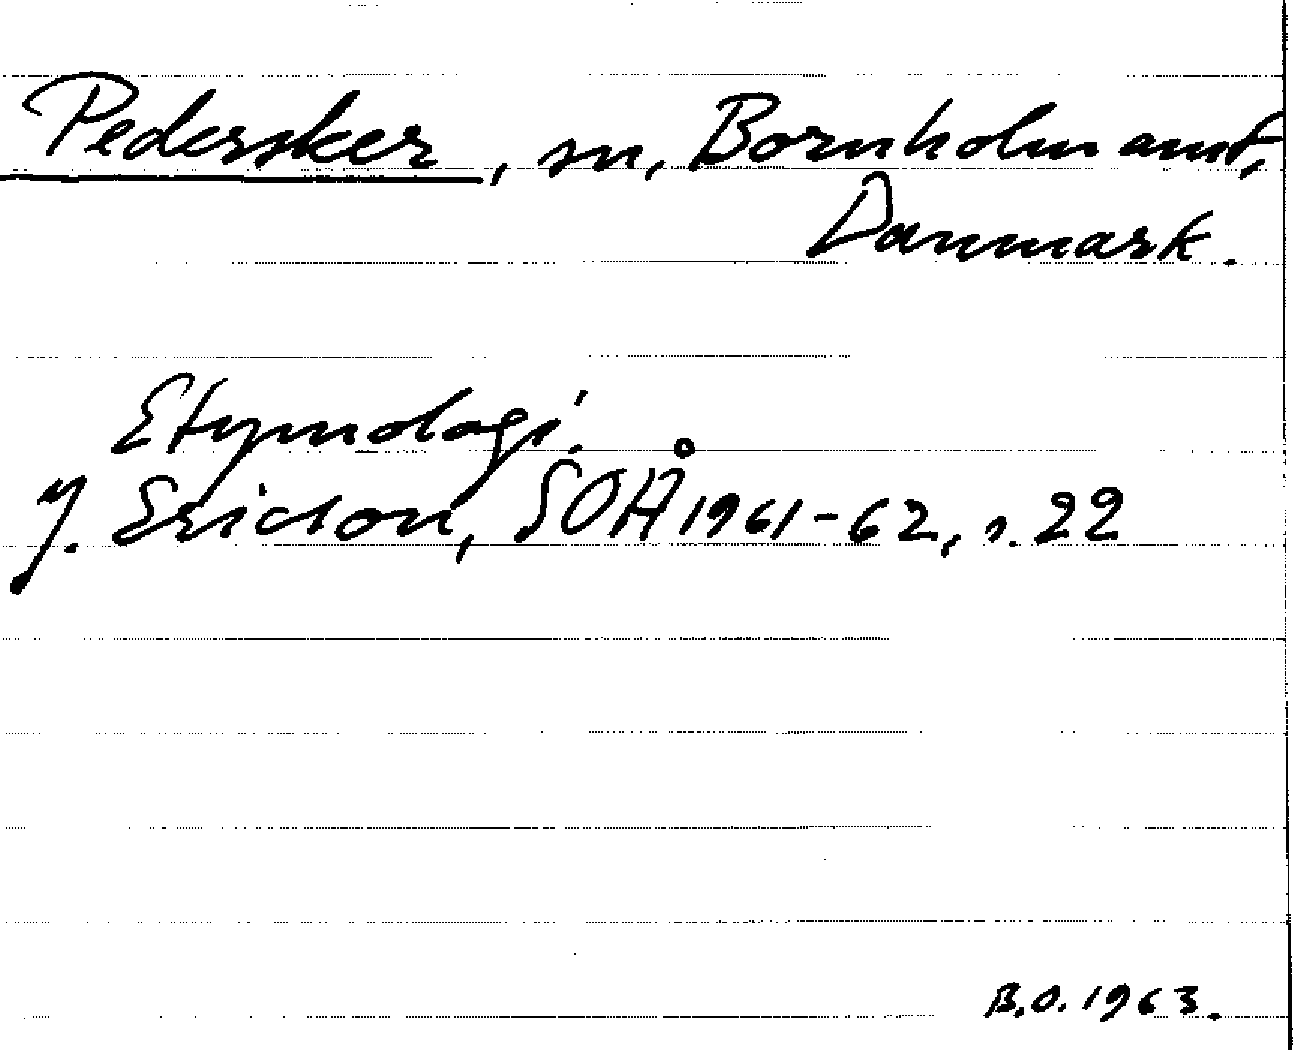 Pedersker, sn, Bornholm amt,
Danmark.
Etymologi.
J. Ericson, SOÅ 1961-62, s. 22
B.O. 1963.